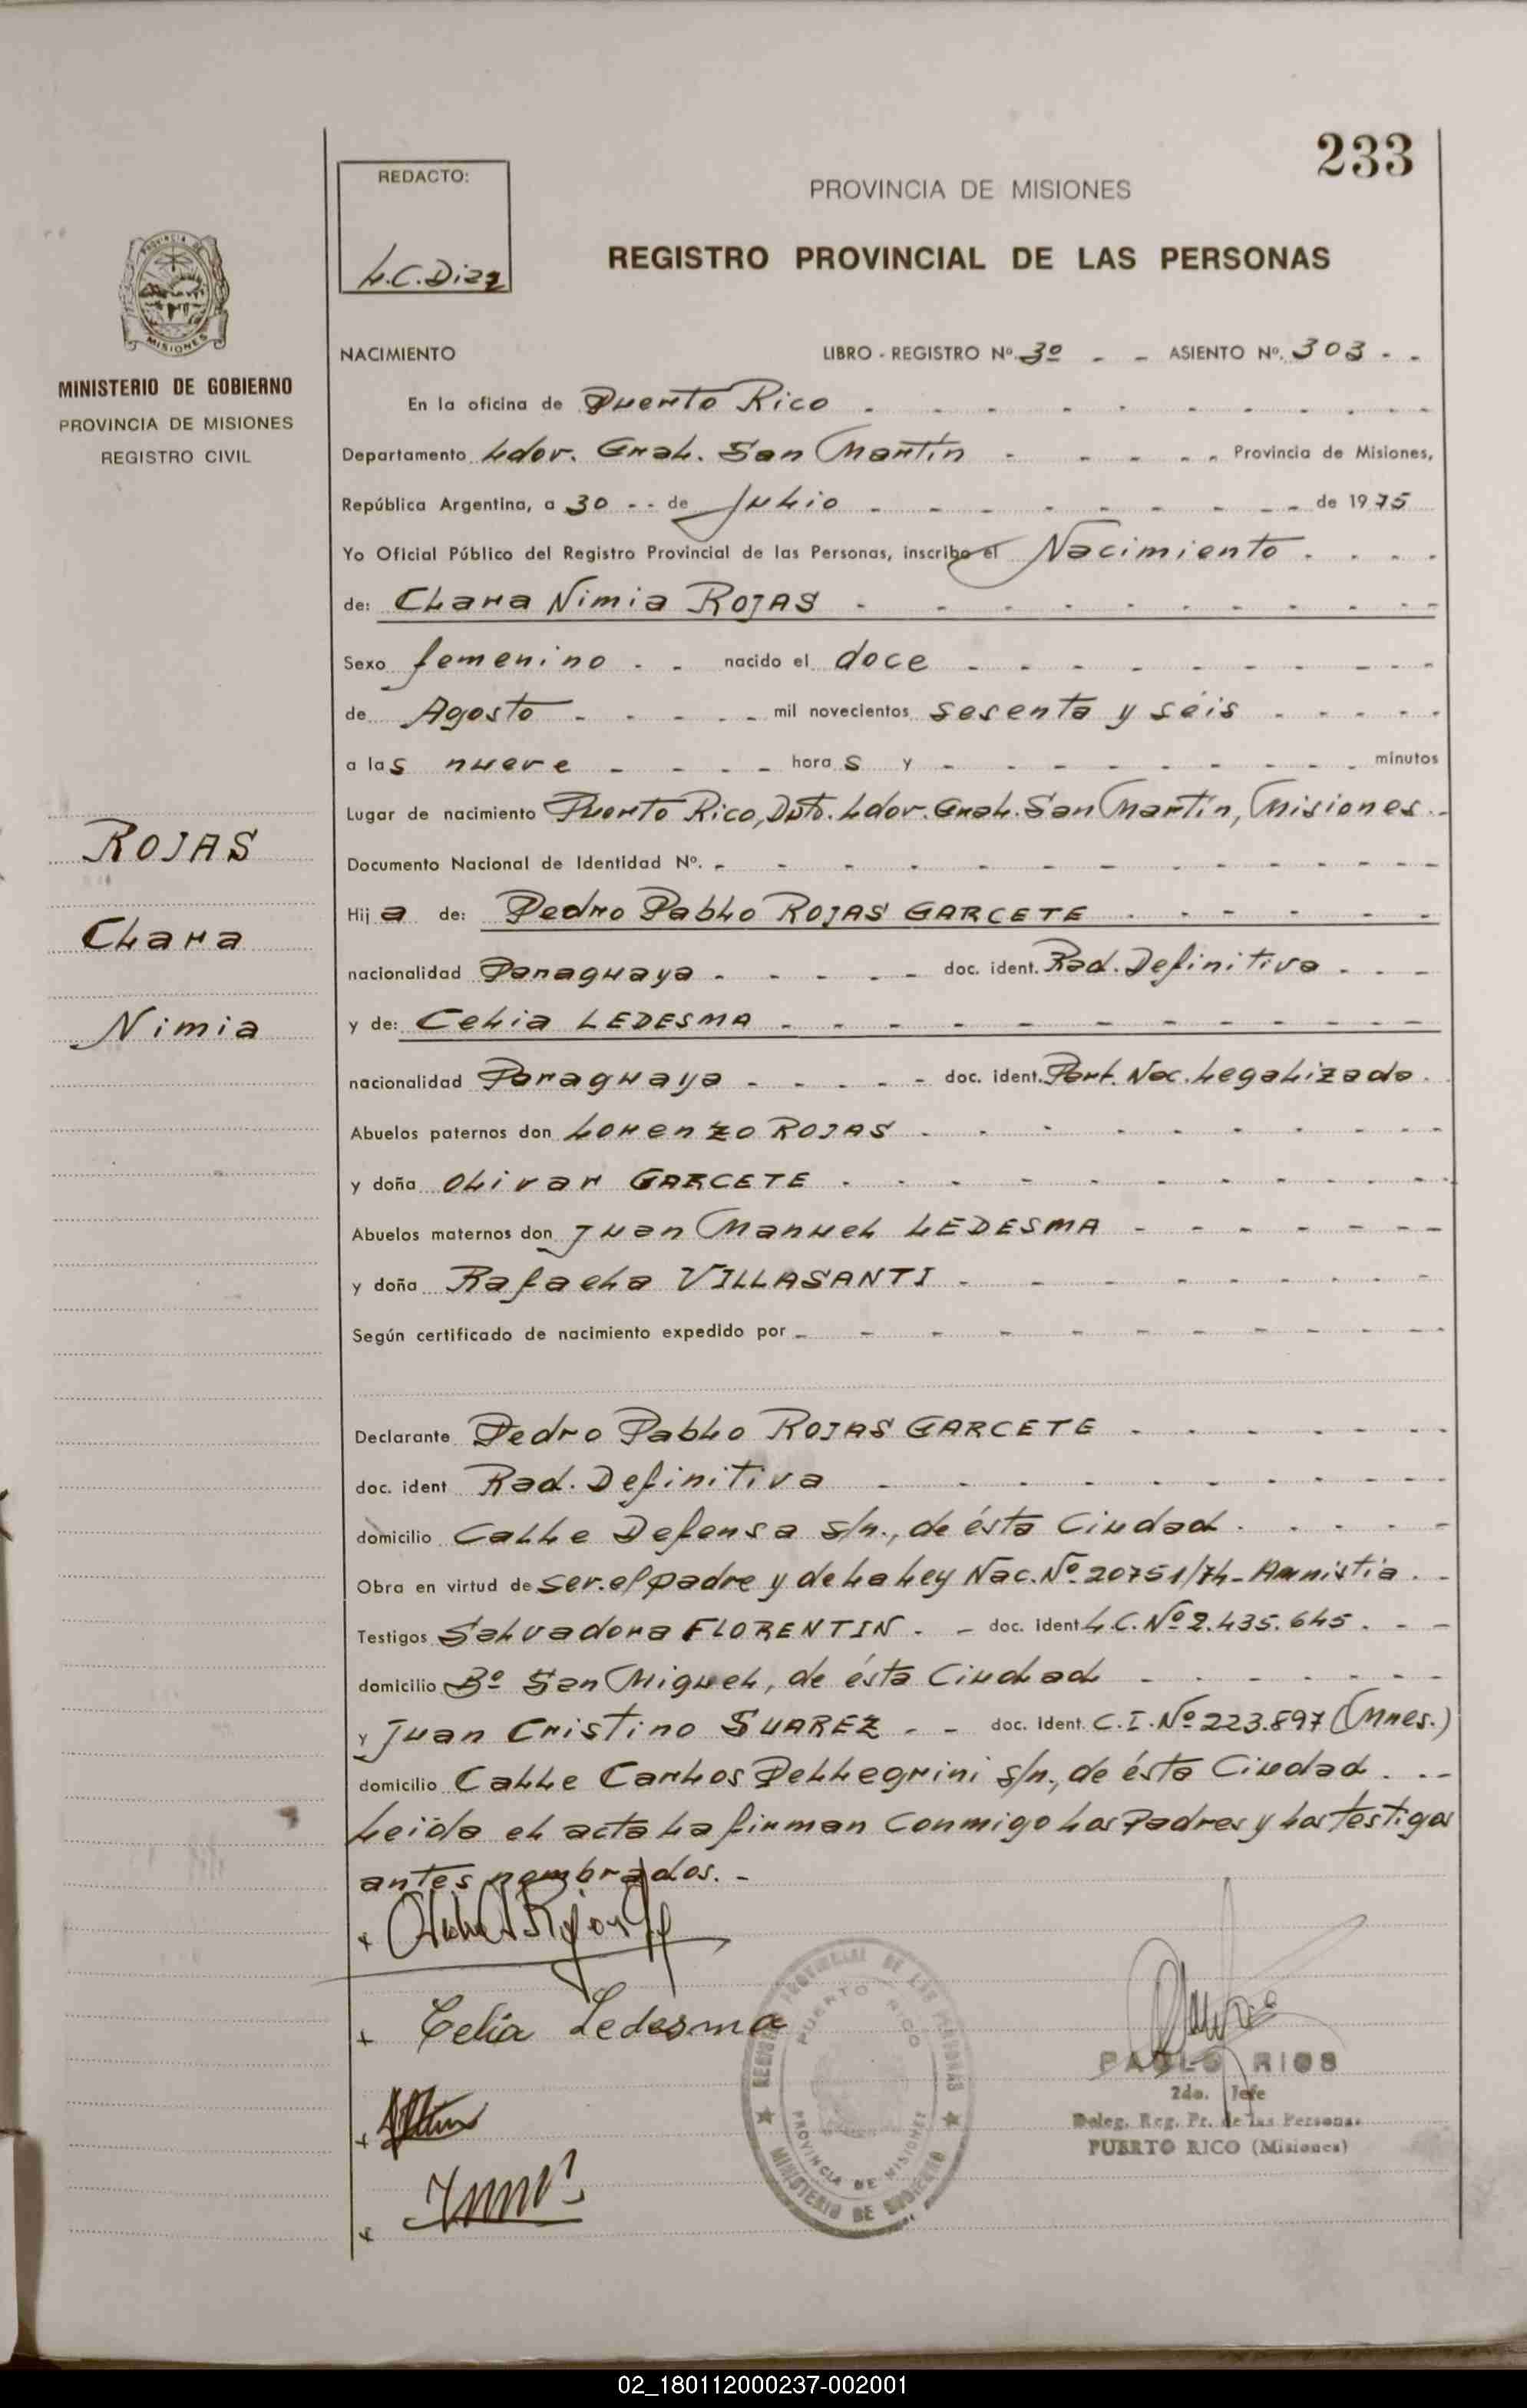 233
REDACTO:
L.C. Diaz
PROVINCIA DE MISIONES
REGISTRO PROVINCIAL DE LAS PERSONAS
PROVINCIA DE
MISIONES
MINISTERIO DE GOBIERNO
PROVINCIA DE MISIONES
REGISTRO CIVIL
ROJAS
Clara
Nimia
NACIMIENTO LIBRO - REGISTRO Nº. 3º - - ASIENTO Nº. 303 - -
En la oficina de Puerto Rico
Departamento Ldor. Gral. San Martín - Provincia de Misiones,
República Argentina, a 30 - - de Julio - de 1975
Yo Oficial Público del Registro Provincial de las Personas, inscribo el Nacimiento
de: Clara Nimia ROJAS
Sexo femenino - - nacido el doce
de Agosto - mil novecientos sesenta y séis
a las nueve - horas y - minutos
Lugar de nacimiento Puerto Rico, Dpto. Ldor. Gral. San Martín, Misiones.-
Documento Nacional de Identidad Nº. -
Hija de: Pedro Pablo ROJAS GARCETE
nacionalidad Paraguaya - doc. ident. Rad. Definitiva
y de: Celia LEDESMA
nacionalidad Paraguaya - doc. ident. Part. Nac. Legalizada.
Abuelos paternos don Lorenzo ROJAS
y doña Olivar GARCETE
Abuelos maternos don Juan Manuel LEDESMA
y doña Rafaela VILLASANTI
Según certificado de nacimiento expedido por -
Declarante Pedro Pablo ROJAS GARCETE
doc. ident Rad. Definitiva
domicilio Calle Defensa s/n., de ésta Ciudad.
Obra en virtud de ser el padre y de la Ley Nac. Nº 20751/74 - Amnistia. -
Testigos Salvadora FLORENTIN. - doc. ident L.C. Nº 2.435.645. - -
domicilio Bº San Miguel, de ésta Ciudad
y Juan Cristino SUAREZ - - doc. ident. C.I. Nº 223.897 (Mnes.)
domicilio Calle Carlos Pellegrini s/n., de ésta Ciudad. --
Leída el acta la firman conmigo los Padres y los testigos
antes nombrados. -
Celia Ledesma
REGISTRO PROVINCIAL DE LAS PERSONAS
PUERTO RICO
PROVINCIA DE MISIONES
MINISTERIO DE GOBIERNO
PABLO RIOS
2do. Jefe
Deleg. Reg. Pr. de las Personas
PUERTO RICO (Misiones)
02_180112000237-002001